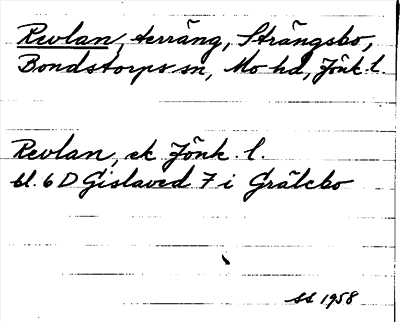 Revlan, terräng, Strängsbo,
Bondstorps sn, Mo hd, Jönk. l.
Revlan, ek Jönk. l.
bl. 6 D Gislaved 7 i Grälebo
SS 1958